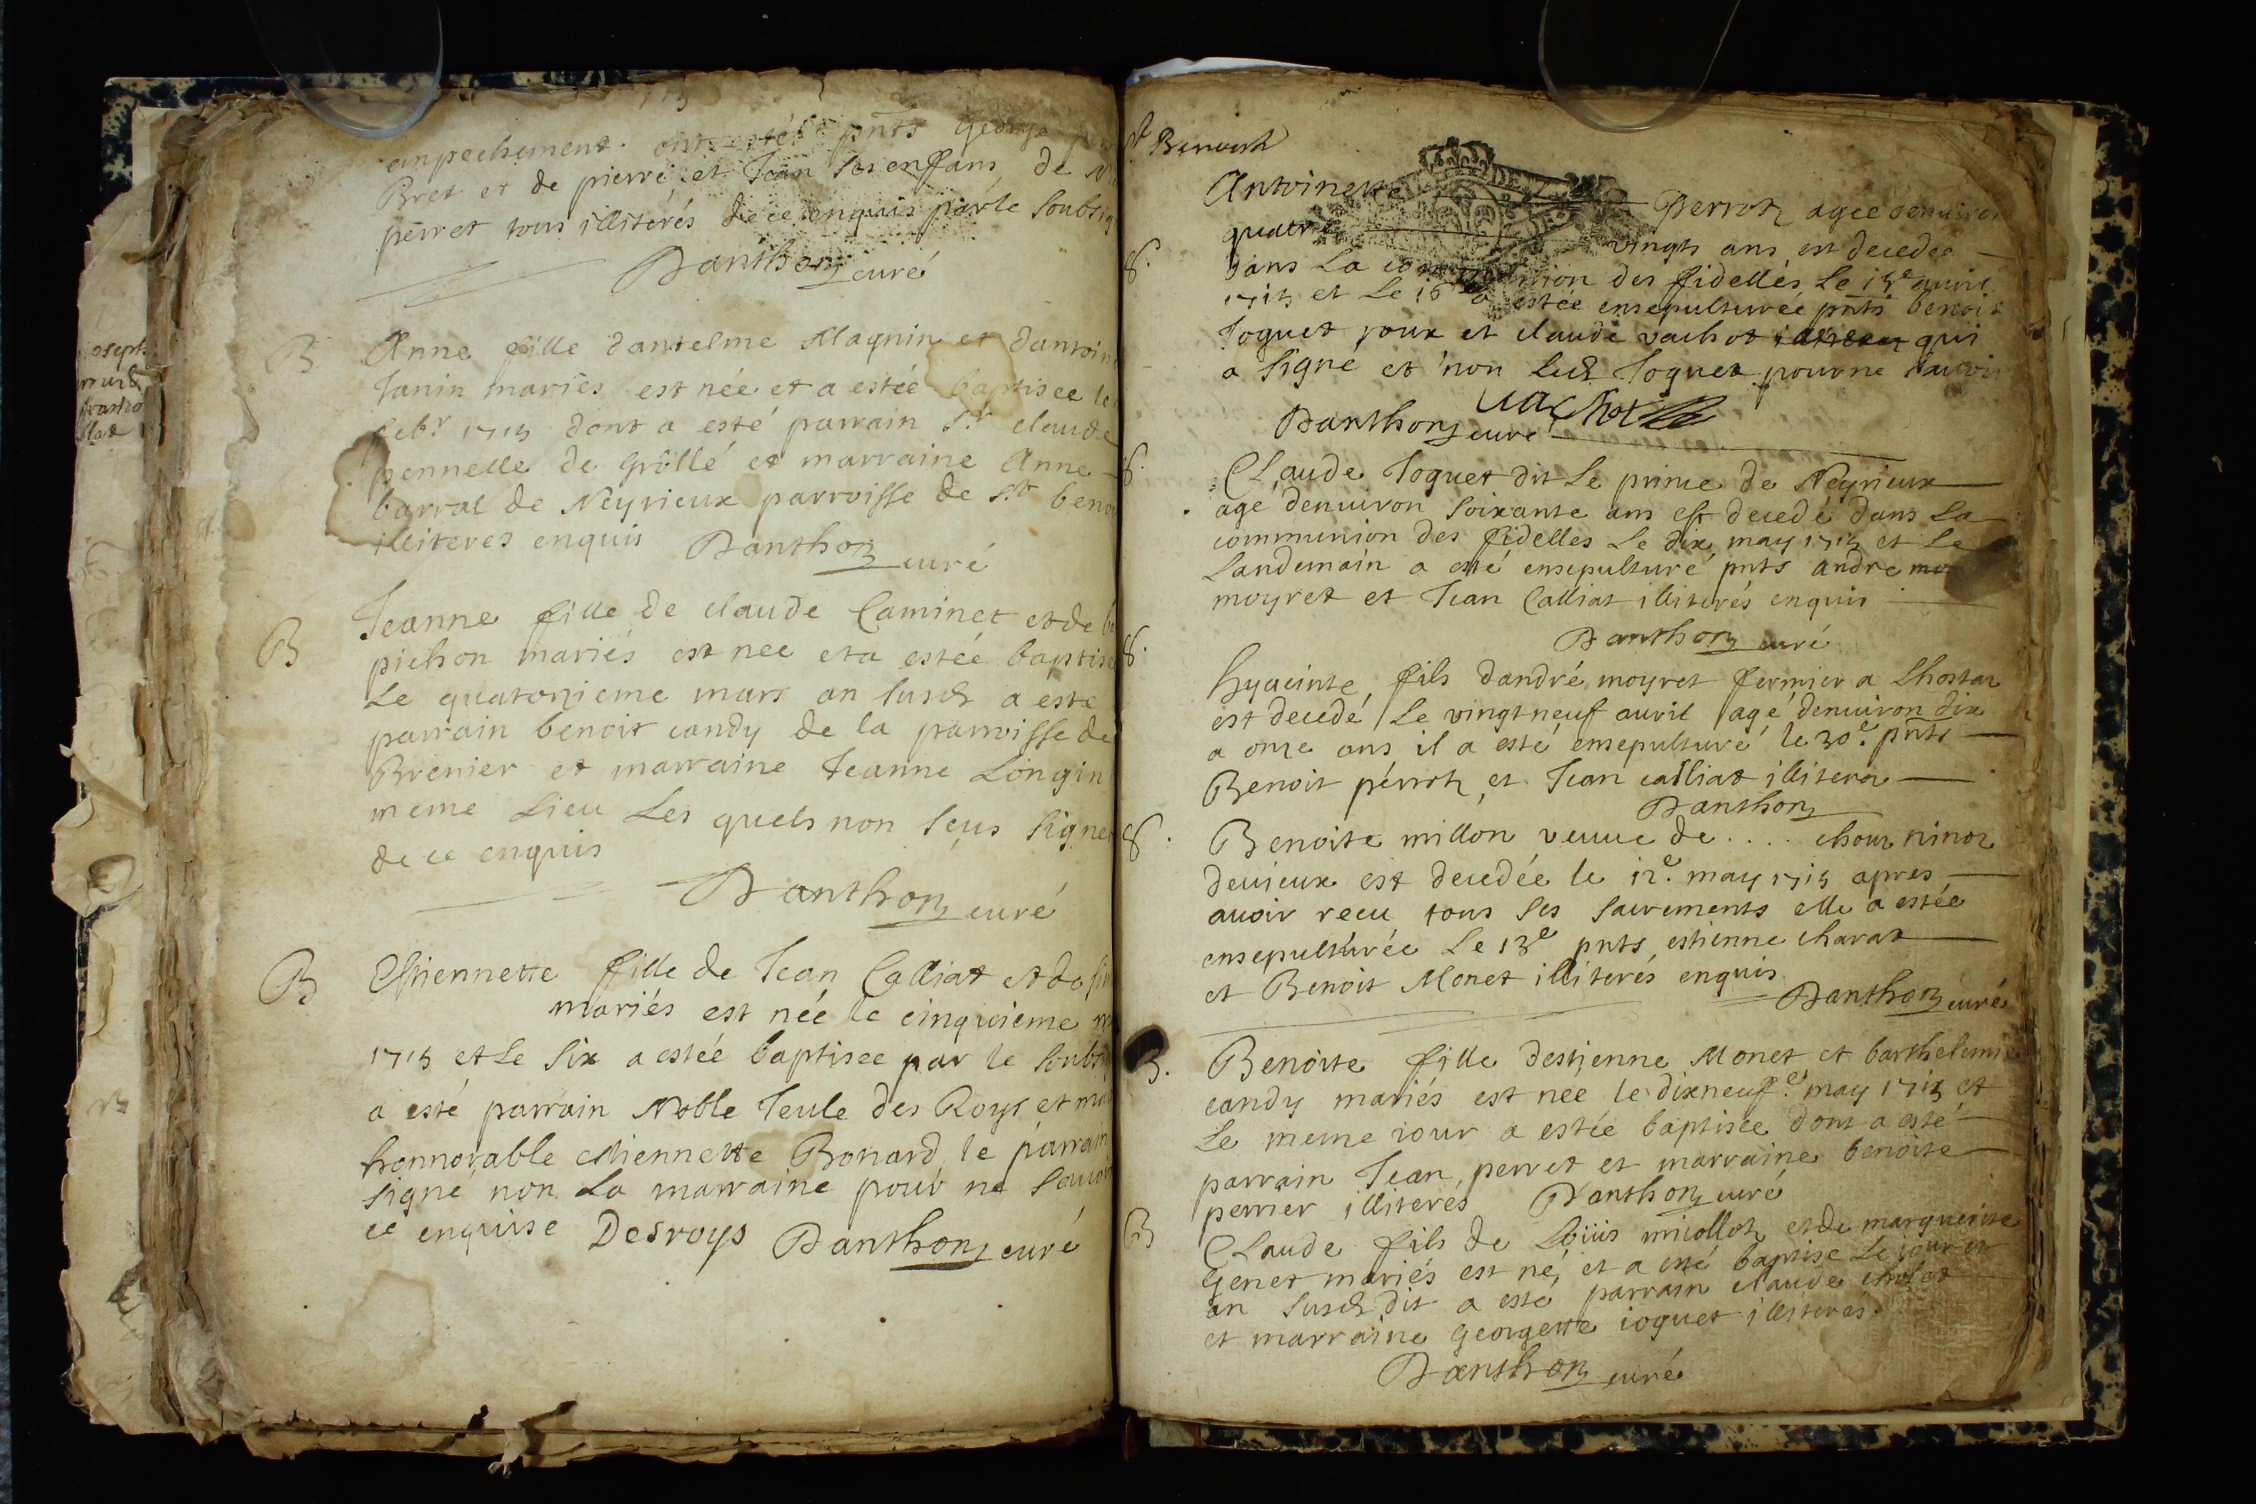 empechement ont esté pnts George
Bret et de pierre et Jean ses enffans, de
perret tous illiterés de ce enquis par le soubsig
Danthon curé
B
Anne fille dantelme Magnin et dantoin
Janin mariés est née et a estée baptisee le
febr 1715 dont a esté parrain Sr claude
pennelle de Grôllé et marraine Anne
barral de Neyrieux parroisse de st beno
illiteres enquis Danthon curé
B
Jeanne fille de claude Caminet et de be
pichon mariés est nee et a estée baptise
Le quatorzieme mars an susd a este
parrain benoit candy de la parroisse de
Brenier et marraine Jeanne Longin
meme Lieu Les quels non sçus signer
de ce enquis
Danthon curé
B
Estiennette fille de Jean Calliat et de
mariés est née le cinquieme
1715 et Le six a estée baptisee par le soubs
a esté parrain Noble Teule des Roys et ma
honnorable estiennette Bonard le parrain
signé non La marraine pour ne scavoir
ce enquise Desroys Danthon curé
st Benoist
Antoinette Perroz agee denuiron
quatre vingts ans est decedee
S.
dans La communion des fidelles Le 15e auril
1715 et Le 16 a estée ensepulturée pnts benoit
Joguet roux et claude vachot qui
a signe et non led Joguet pour ne scauoir
vachot
Danthon curé
S.
CLaude Joguet dit Le prince de Neyrieux
agé denuiron soixante ans est decedé dans La
communion des fidelles Le dix may 1715 et Le
Landemain a esté ensepulturé pnts andre mo
moyret et Jean Calliat illiterés enquis
Danthon curé
S.
hyacinte fils dandré moyret fermier a Lhostar
est decedé Le vingt neuf auril agé denuiron dix
a onze ans il a esté ensepulturé le 30e. pnts
Benoit perroz et Jean calliat illiterés
Danthon
S.
Benoite millon veuue de .... chour ninoz
deuieux est decedée le 12e. may 1715 apres
auoir recu tous ses sacrements elle a estée
ensepulturée Le 13e pnts estienne charat
et Benoit Monet illiterés enquis
Danthon curé
B.
Benoite fille destienne Monet et barthelemie
candy mariés est nee le dixneufe. may 1715 et
Le meme iour a estée baptisee dont a esté
parrain Jean perret et marraine benoite
perrier illiterés Danthon curé
B
CLaude fils de Loüis micolloz et de marguerite
Genet mariés est né et a esté baptise Le iour et
an susd dit a este parrain claude cholet
et marraine Georgette ioguet illiterés.
Danthon curé